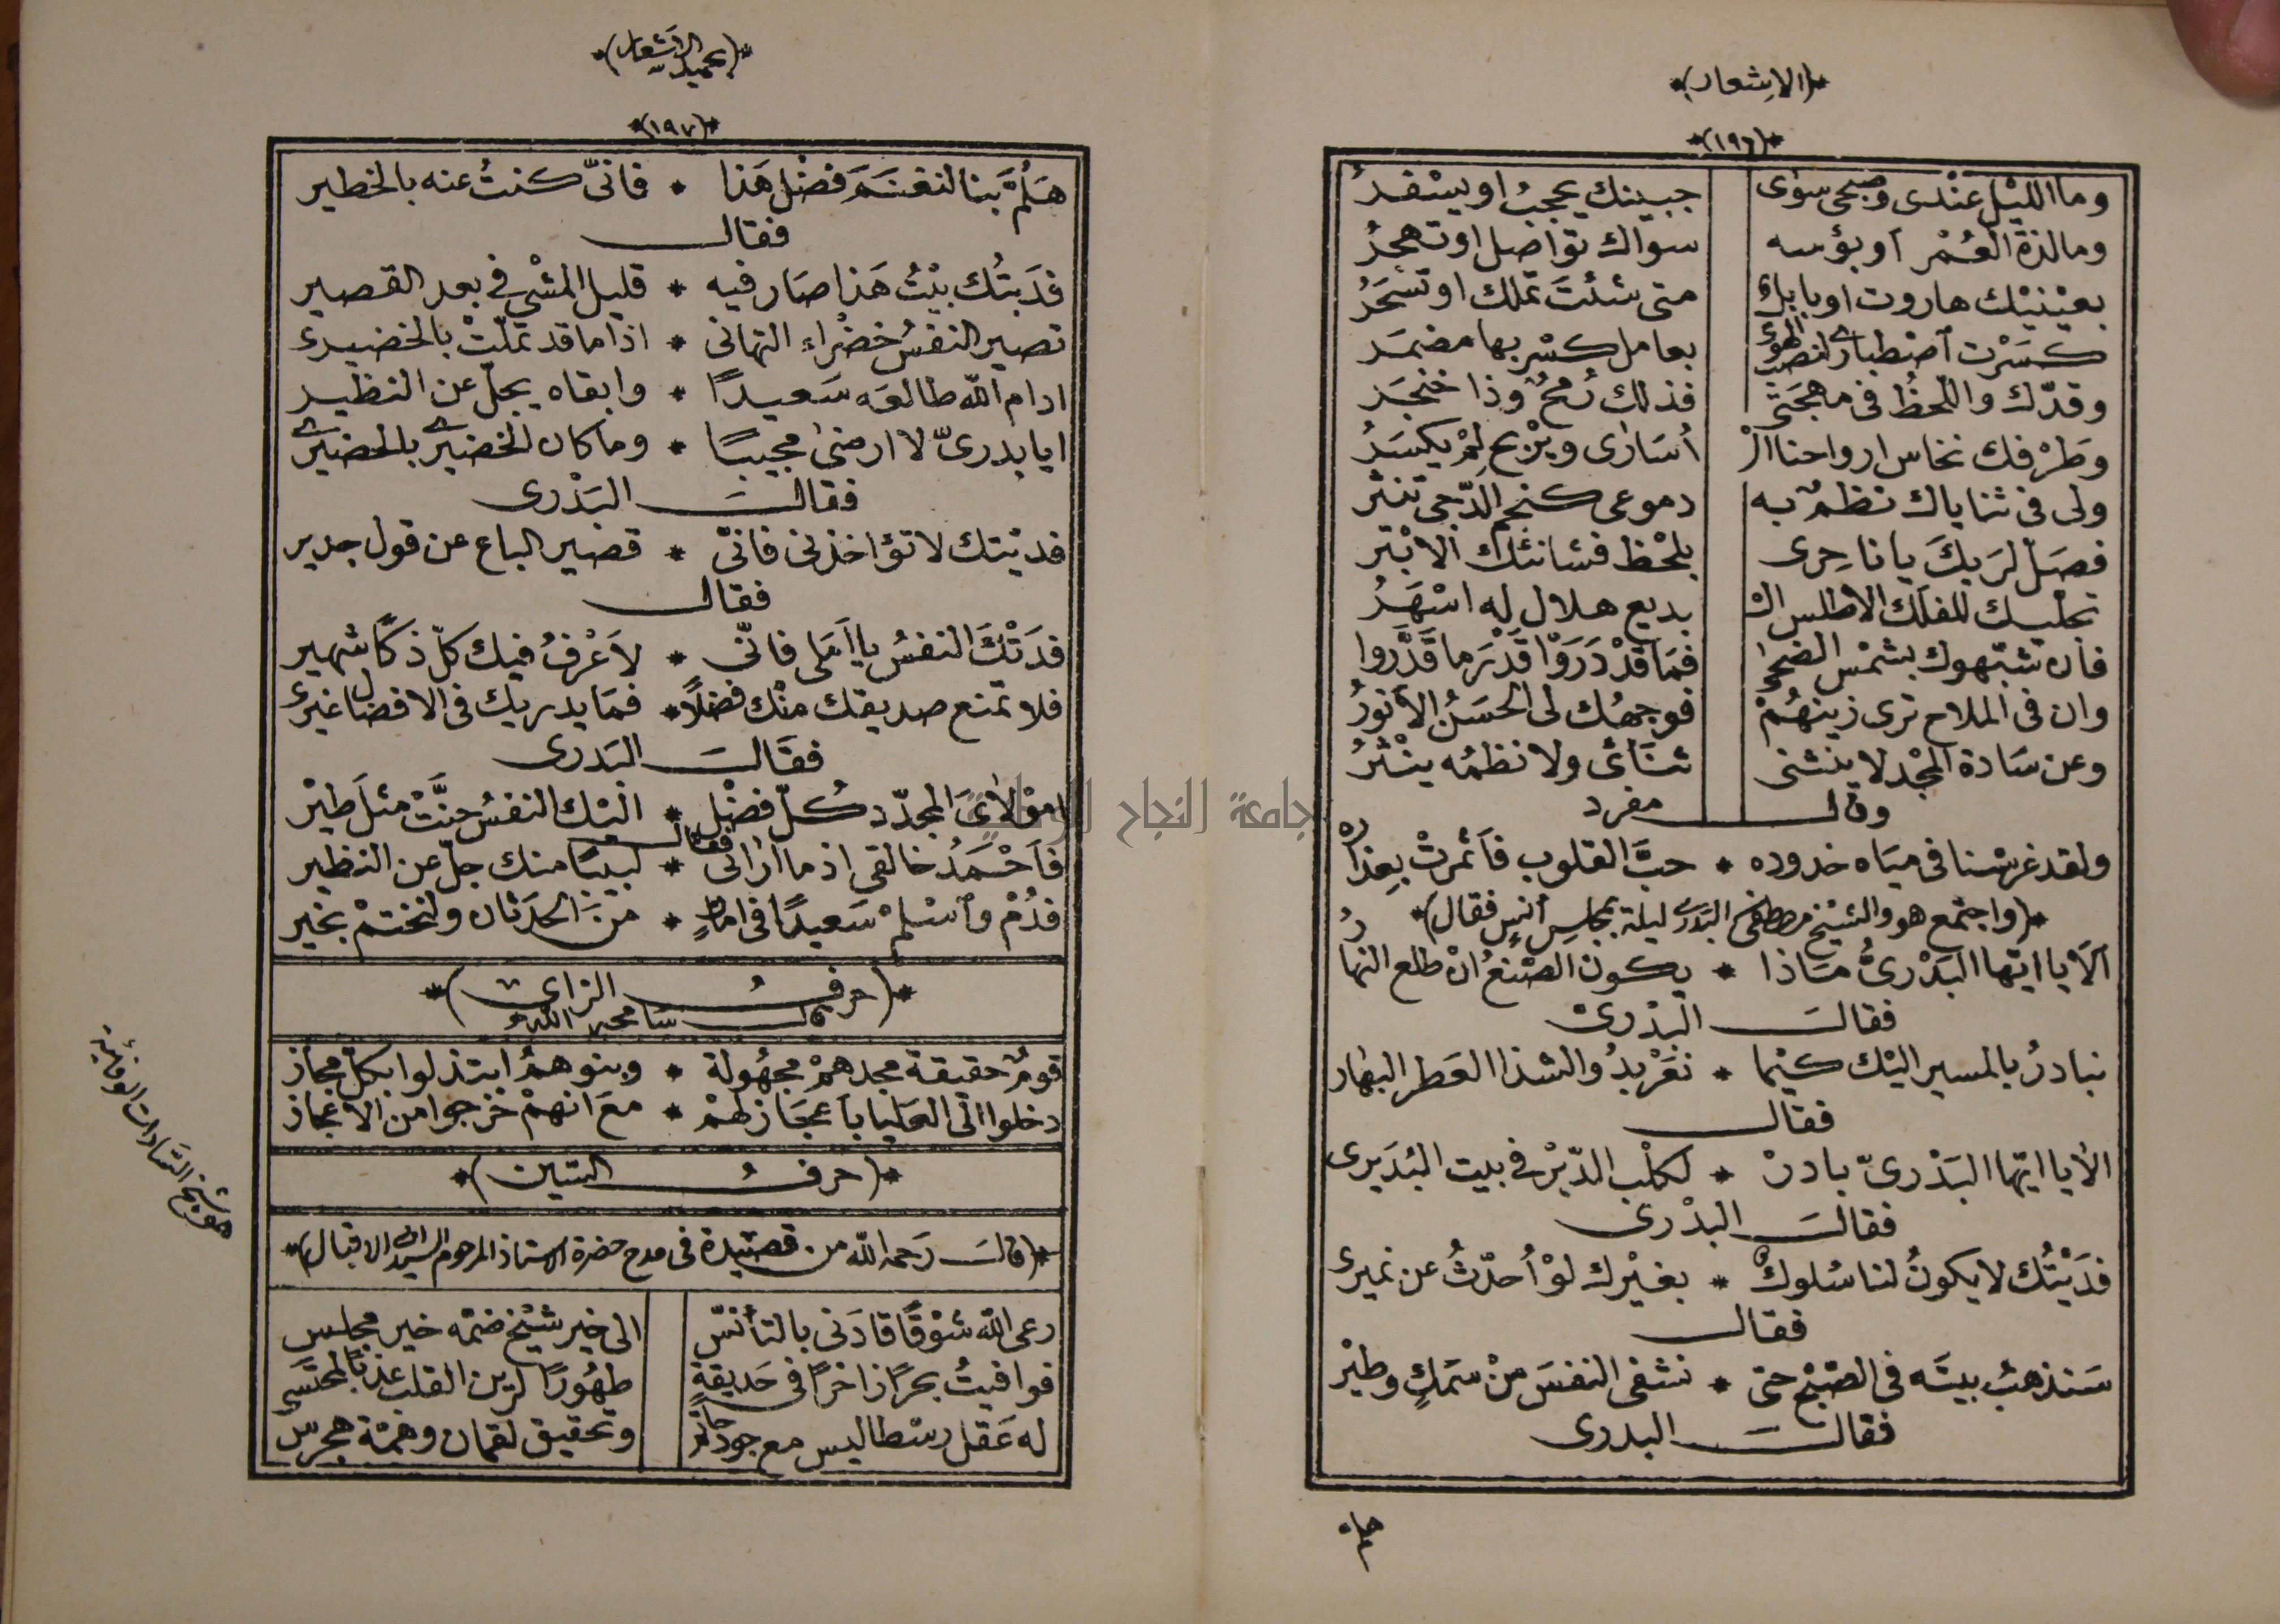 *(الاشعار)*
*(١٩٦)*
وما الليْل عنْدى وصبحى سوٰى جبينك يحجبُ او يسْفرُ
ومالذة العُمْر او بؤسه سواك تواصل او تهجرُ
بعيْنيْك هاروت او بابل متى شئتَ تملك او تسْحَرُ
كسَرْت اصْطبارى لنصر الهوى بعامل كسْر بها مضمَر
وقدّك واللّحظُ فى مهجَتى فذلك رُمحٌ وذا خنجَر
وطَرْفك نخاس ارواحنا الْ أسَارٰى وبزْيح لمْ يكسَدُ
ولى فى ثناياك نظمٌ به دموعى كنجم الدّجى تنثر
فصَلّ لرَبكَ يا ناحِرى بلحْظ فشانئك الابْتر
تجلْيسك للفلَك الاطلس الْ بديع هلال له اشهَرُ
فان شبّهوك بشمْس الضحىٰ فمَا قدْ دَرَوْا قدْرَ ما قَدَّروا
وان فى الملاح ترى زينهُمْ فوجهُك لى الحسَنُ الأنوَرُ
وعن سَادة المجْد لا ينثنى ثنَائى ولا نظمُه ينْثرُ
وقال مفرد
ولقد غرسْنا فى ميَاه خدوده * حبَّ القلوب فأثمرتْ بعِذاره
*(واجتمع هو والشيْخ مصطفى البَدرى ليلة بمجلسِ أنسٍ فقال)*
اَلاَ يا ايّها البَدْرىُّ مَاذا * يكون الصّنعُ انْ طلع النهارُ
فقالَ البدْرىْ
نبادرُ بالمسير اليْك كيْما * نغَرْبدُ والشذا العَطر البهار
فقال
الا يا ايّها البَدْرىّ بادرْ * لكلْب الدّيْر فى بيت البُدَيرى
فقالَ البدْرى
فدَيْتُك لا يكونُ لنا سُلوكٌ * بغيْرك لوْ أُحدّثُ عن نميرى
فقال
سَنذهبُ بيتَه فى الصّبْح حتى * نشفى النفسَ منْ سَمكٍ وطيْر
فقالَ البدرى
هلم
*(بحميد الاَشعار)*
*(١٩٧)*
هَلُمَّ بنا لنغنَمَ فضْل هَذا * فانىّ كنتُ عنه بالخطير
فقال
فدَيتُك بيْتُ هَذا صَار فيه * قليل المشْىِ فى بعد القصير
تصير النفسُ خضْراء التهانى * اذا ما قد تملّتْ بالخضيرى
ادام اللّه طالعَه سَعيدًا * وابقاه يجلّ عن النظير
ايا بدرىّ لا ارضىٰ مجيبًا * وما كان الخضيرى بالحضيرى
فقالَ البَدْرى
فديْتك لا تؤاخذنى فانىّ * قصير الباع عن قول جدير
فقال
فدَتْكَ النفسُ يا اَمَلى فانّى * لاَعْرفُ فيك كلّ ذكاً شهير
فلا تمنع صديقك منْك فضلاً * فمَا يدريك فى الافضال غيرى
فقَالَ البَدرى
امولاىَ المجدّد كُلّ فضْل * اليْك النفسُ حنَّتْ مثلَ طيْر
فقال
فأحْمَدُ خالقى اذ ما ارانى * لبيبًا منك جلّ عن النظير
فدُمْ واسْلمْ سَعيدًا فى امانٍ * منَ الحدَثان ولنختمْ بخير
*(حرفُ الزاى)*
قال سامحه اللّه
قومٌ حقيقة مجدهمْ مجهُولة * وبنوهمُ ابتذلوا بكلّ مجاز
دخلوا الى العليا باَعجَازلهمْ * معَ انهمْ خرجوا من الاعجاز
*(حرفُ السّين)*
*(قالَ رَحمه اللّه من قصَيدة فى مدح حضرة الاستاذ المرحوم السيد ابى الاقبال)*
رعى اللّه شوْقًا قادَنى بالتأنّس الى خير شيْخ ضمّه خير مجلس
فوافيتُ بحرًا زاخرًا فى حَديقةٍ طهُورًا لرين القلب عذبًا لمحتَسى
له عَقل رسْطاليس مع جود حاتم وتحقيق لقمان وهمّة هجرس
هو شيخ السّادات الوفائية